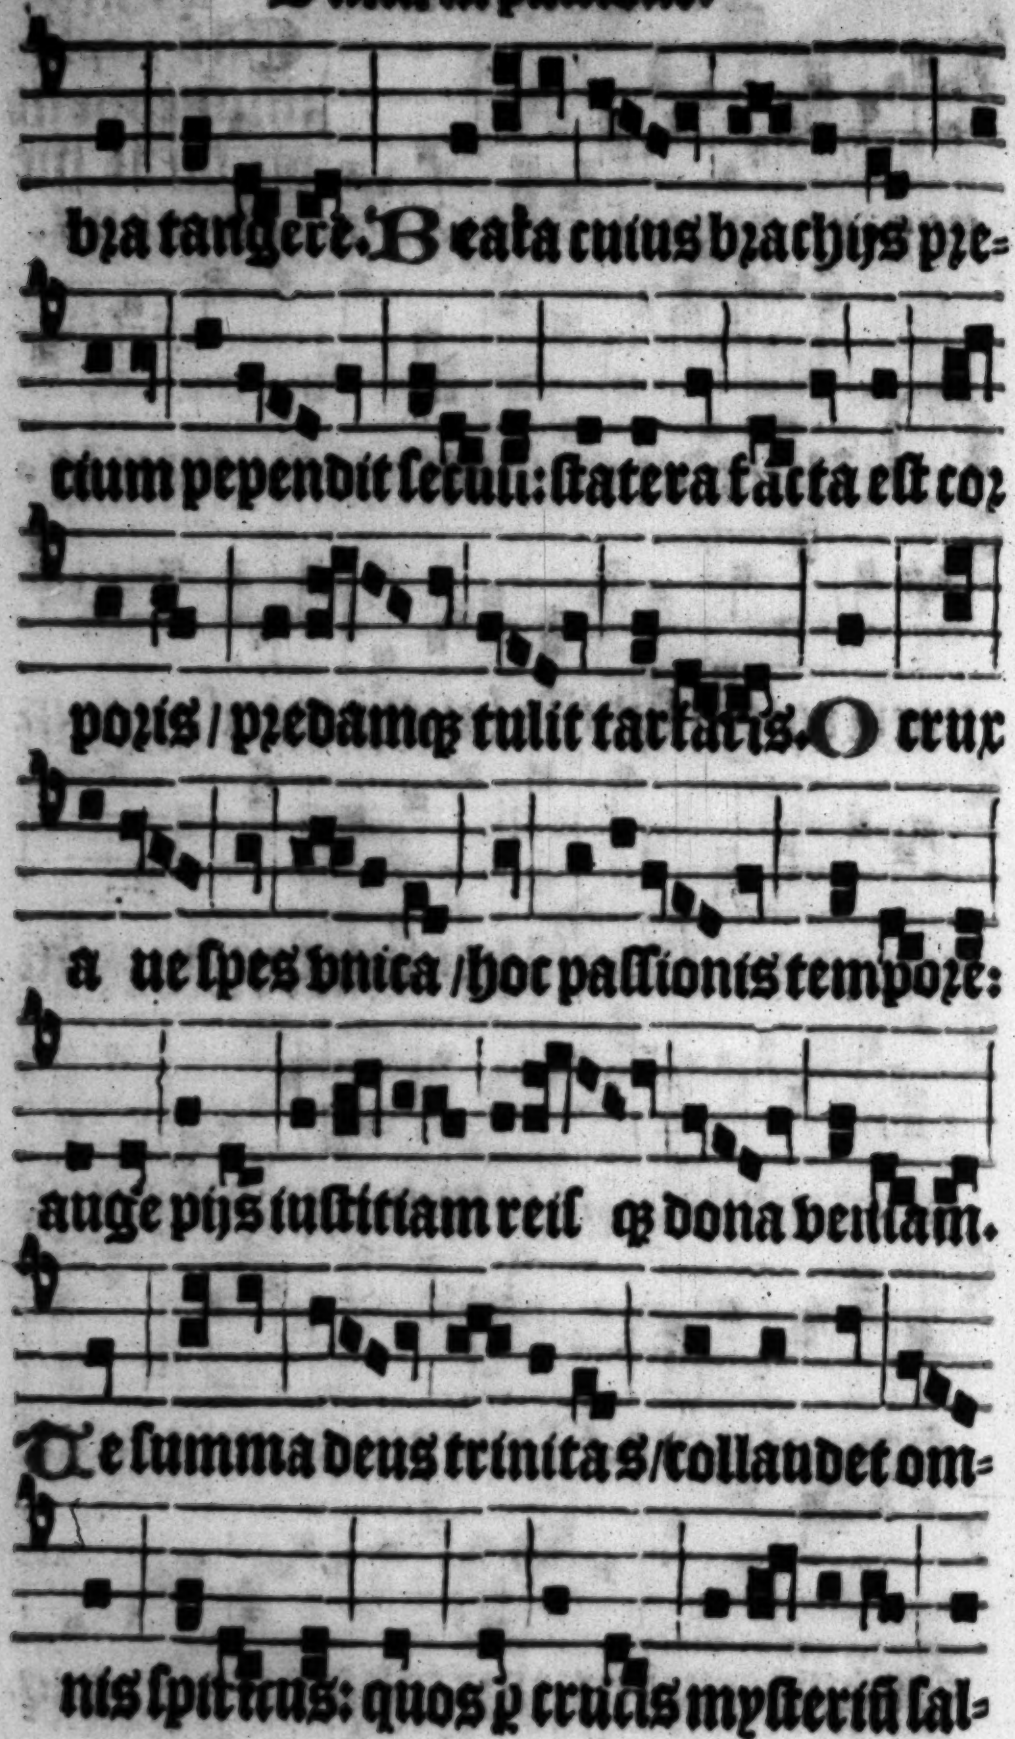 bra tangere. Beata cuius brachijs pre=
cium pependit seculi: statera facta est cor
poris / predamqꝫ tulit tartaris. O crux
a ue spes vnica / hoc passionis tempore:
auge pijs iustitiam reis qꝫ dona veniam.
Te summa deus trinitas / collaudet om=
nis spiritus: quos ꝑ crucis mysteriū sal=